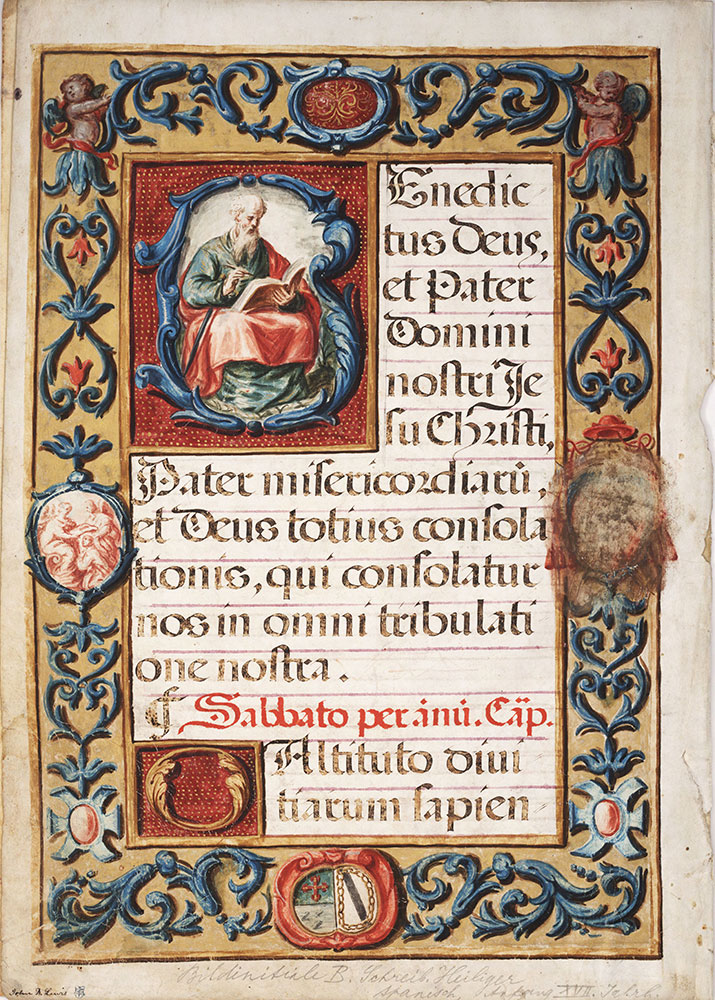 BEnedic
tus Deus,
et Pater
Domini
nostri Je
su Christi,
Pater misericordiarū,
et Deus totius consola
tionis, qui consolatur
nos in omni tribulati
one nostra.
¶ Sabbato per ánū. Cāp.
OAltituto divi
tiarum sapien
Bildinitiale B. Schreib. Heiliger
Spanisch, XVII. Jahrh.
John F. Lewis